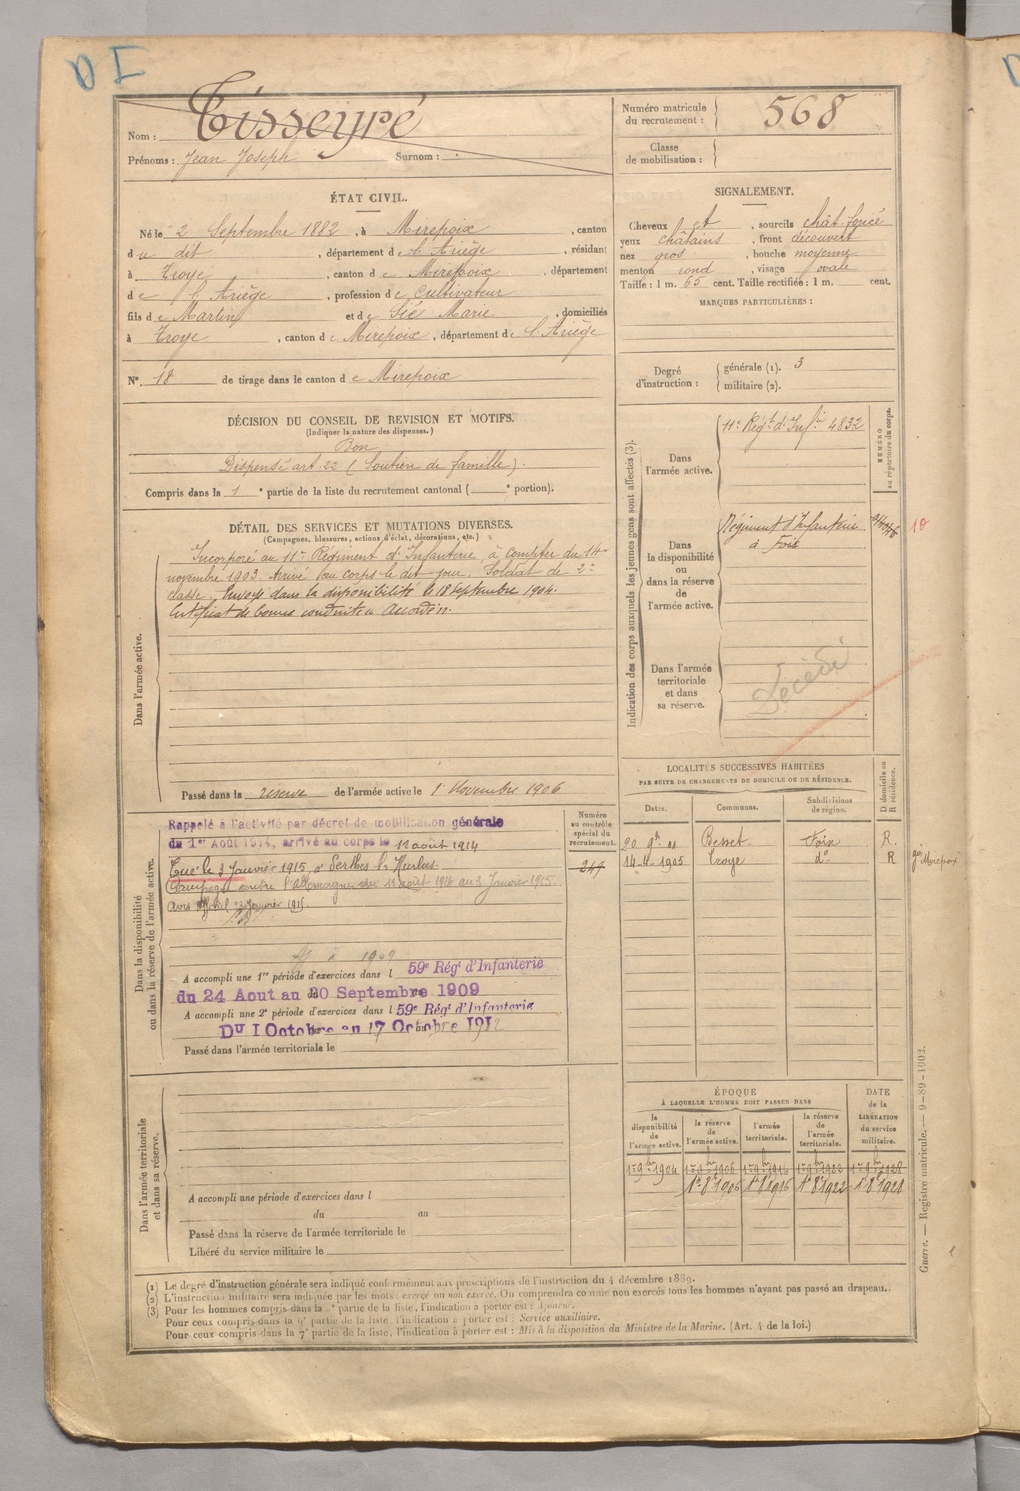 Nom : Tisseyré
Prénoms : Jean Joseph Surnom : .
Numéro matricule du recrutement : 568
Classe de mobilisation :
ÉTAT CIVIL.
Né le 2 Septembre 1882, à Mirepoix, canton
du dit, département de l'Ariège, résidant
à Troye, canton de Mirepoix, département
de l'Ariège, profession de cultivateur
fils de Martin et de Sié Marie, domiciliés
à Troye, canton de Mirepoix, département de l'Ariège
N° 18 de tirage dans le canton de Mirepoix
SIGNALEMENT.
Cheveux, sourcils chât. foncé
yeux châtains, front découvert
nez gros, bouche moyenne
menton rond, visage ovale
Taille : 1 m. 65 cent. Taille rectifiée : 1 m. cent.
MARQUES PARTICULIÈRES :
Degré d'instruction : générale (1). 3
militaire (2).
DÉCISION DU CONSEIL DE REVISION ET MOTIFS.
(Indiquer la nature des dispenses.)
Bon
Dispensé art. 22 (Soutien de famille).
Compris dans la 1e partie de la liste du recrutement cantonal ( e portion).
DÉTAIL DES SERVICES ET MUTATIONS DIVERSES.
(Campagnes, blessures, actions d'éclat, décorations, etc.)
Dans l'armée active.
Incorporé au 11e Régiment d'Infanterie à compter du 14
novembre 1903. Arrivé au corps le dit jour. Soldat de 2e
classe. Envoyé dans la disponibilité le 18 Septembre 1904.
Certificat de bonne conduite Accordé
Passé dans la réserve de l'armée active le 1 Novembre 1906
Indication des corps auxquels les jeunes gens sont affectés (3).
Dans l'armée active. 11e Régt d'Infie 4832
NUMÉRO au répertoire du corps.
Dans la disponibilité ou dans la réserve de l'armée active.
Régiment d'Infanterie
à Foix
10
Dans l'armée territoriale et dans sa réserve.
Décédé
LOCALITÉS SUCCESSIVES HABITÉES
PAR SUITE DE CHANGEMENTS DE DOMICILE OU DE RÉSIDENCE.
Dates. Communes. Subdivisions de région. D domicile ou R résidence.
Besset Foix R.
1905 Troye do R
Mirepoix
Dans la disponibilité ou dans la réserve de l'armée active.
Numéro au contrôle spécial du recrutement.
249
Rappelé à l'activité par décret de mobilisation générale
du 1er Août 1914, arrivé au corps le 12 août 1914
Tué le 3 Janvier 1915, à Perthes les Hurlus.
Campagne contre l'Allemagne du 12 août 1914 au 3 Janvier 1915.
A accompli une 1re période d'exercices dans l 59e Régt d'Infanterie
du 24 Aout au 20 Septembre 1909
A accompli une 2e période d'exercices dans l 59e Régt d'Infanterie
Du 1 Octobre au 17 Octobre 1912
Passé dans l'armée territoriale le
Dans l'armée territoriale et dans sa réserve.
A accompli une période d'exercices dans l
du au
Passé dans la réserve de l'armée territoriale le
Libéré du service militaire le
ÉPOQUE
À LAQUELLE L'HOMME DOIT PASSER DANS
DATE de la LIBÉRATION du service militaire.
la disponibilité de l'armée active. la réserve de l'armée active. l'armée territoriale. la réserve de l'armée territoriale.
1er 9bre 1904 1er 9bre 1906 1er 9bre 1916 1er 9bre 1922 1er 9bre 1928
1er 8e 1906 1er 8e 1916 1er 8e 1922 1er 8e 1928
Guerre. — Registre matricule. — 9-89-1902.
(1) Le degré d'instruction générale sera indiqué conformément aux prescriptions de l'instruction du 4 décembre 1889.
(2) L'instruction militaire sera indiquée par les mots : exercé ou non exercé. On comprendra comme non exercés tous les hommes n'ayant pas passé au drapeau.
(3) Pour les hommes compris dans la partie de la liste, l'indication à porter est : Ajourné.
Pour ceux compris dans la partie de la liste, l'indication à porter est : Service auxiliaire.
Pour ceux compris dans la 7e partie de la liste, l'indication à porter est : Mis à la disposition du Ministre de la Marine. (Art. 4 de la loi.)